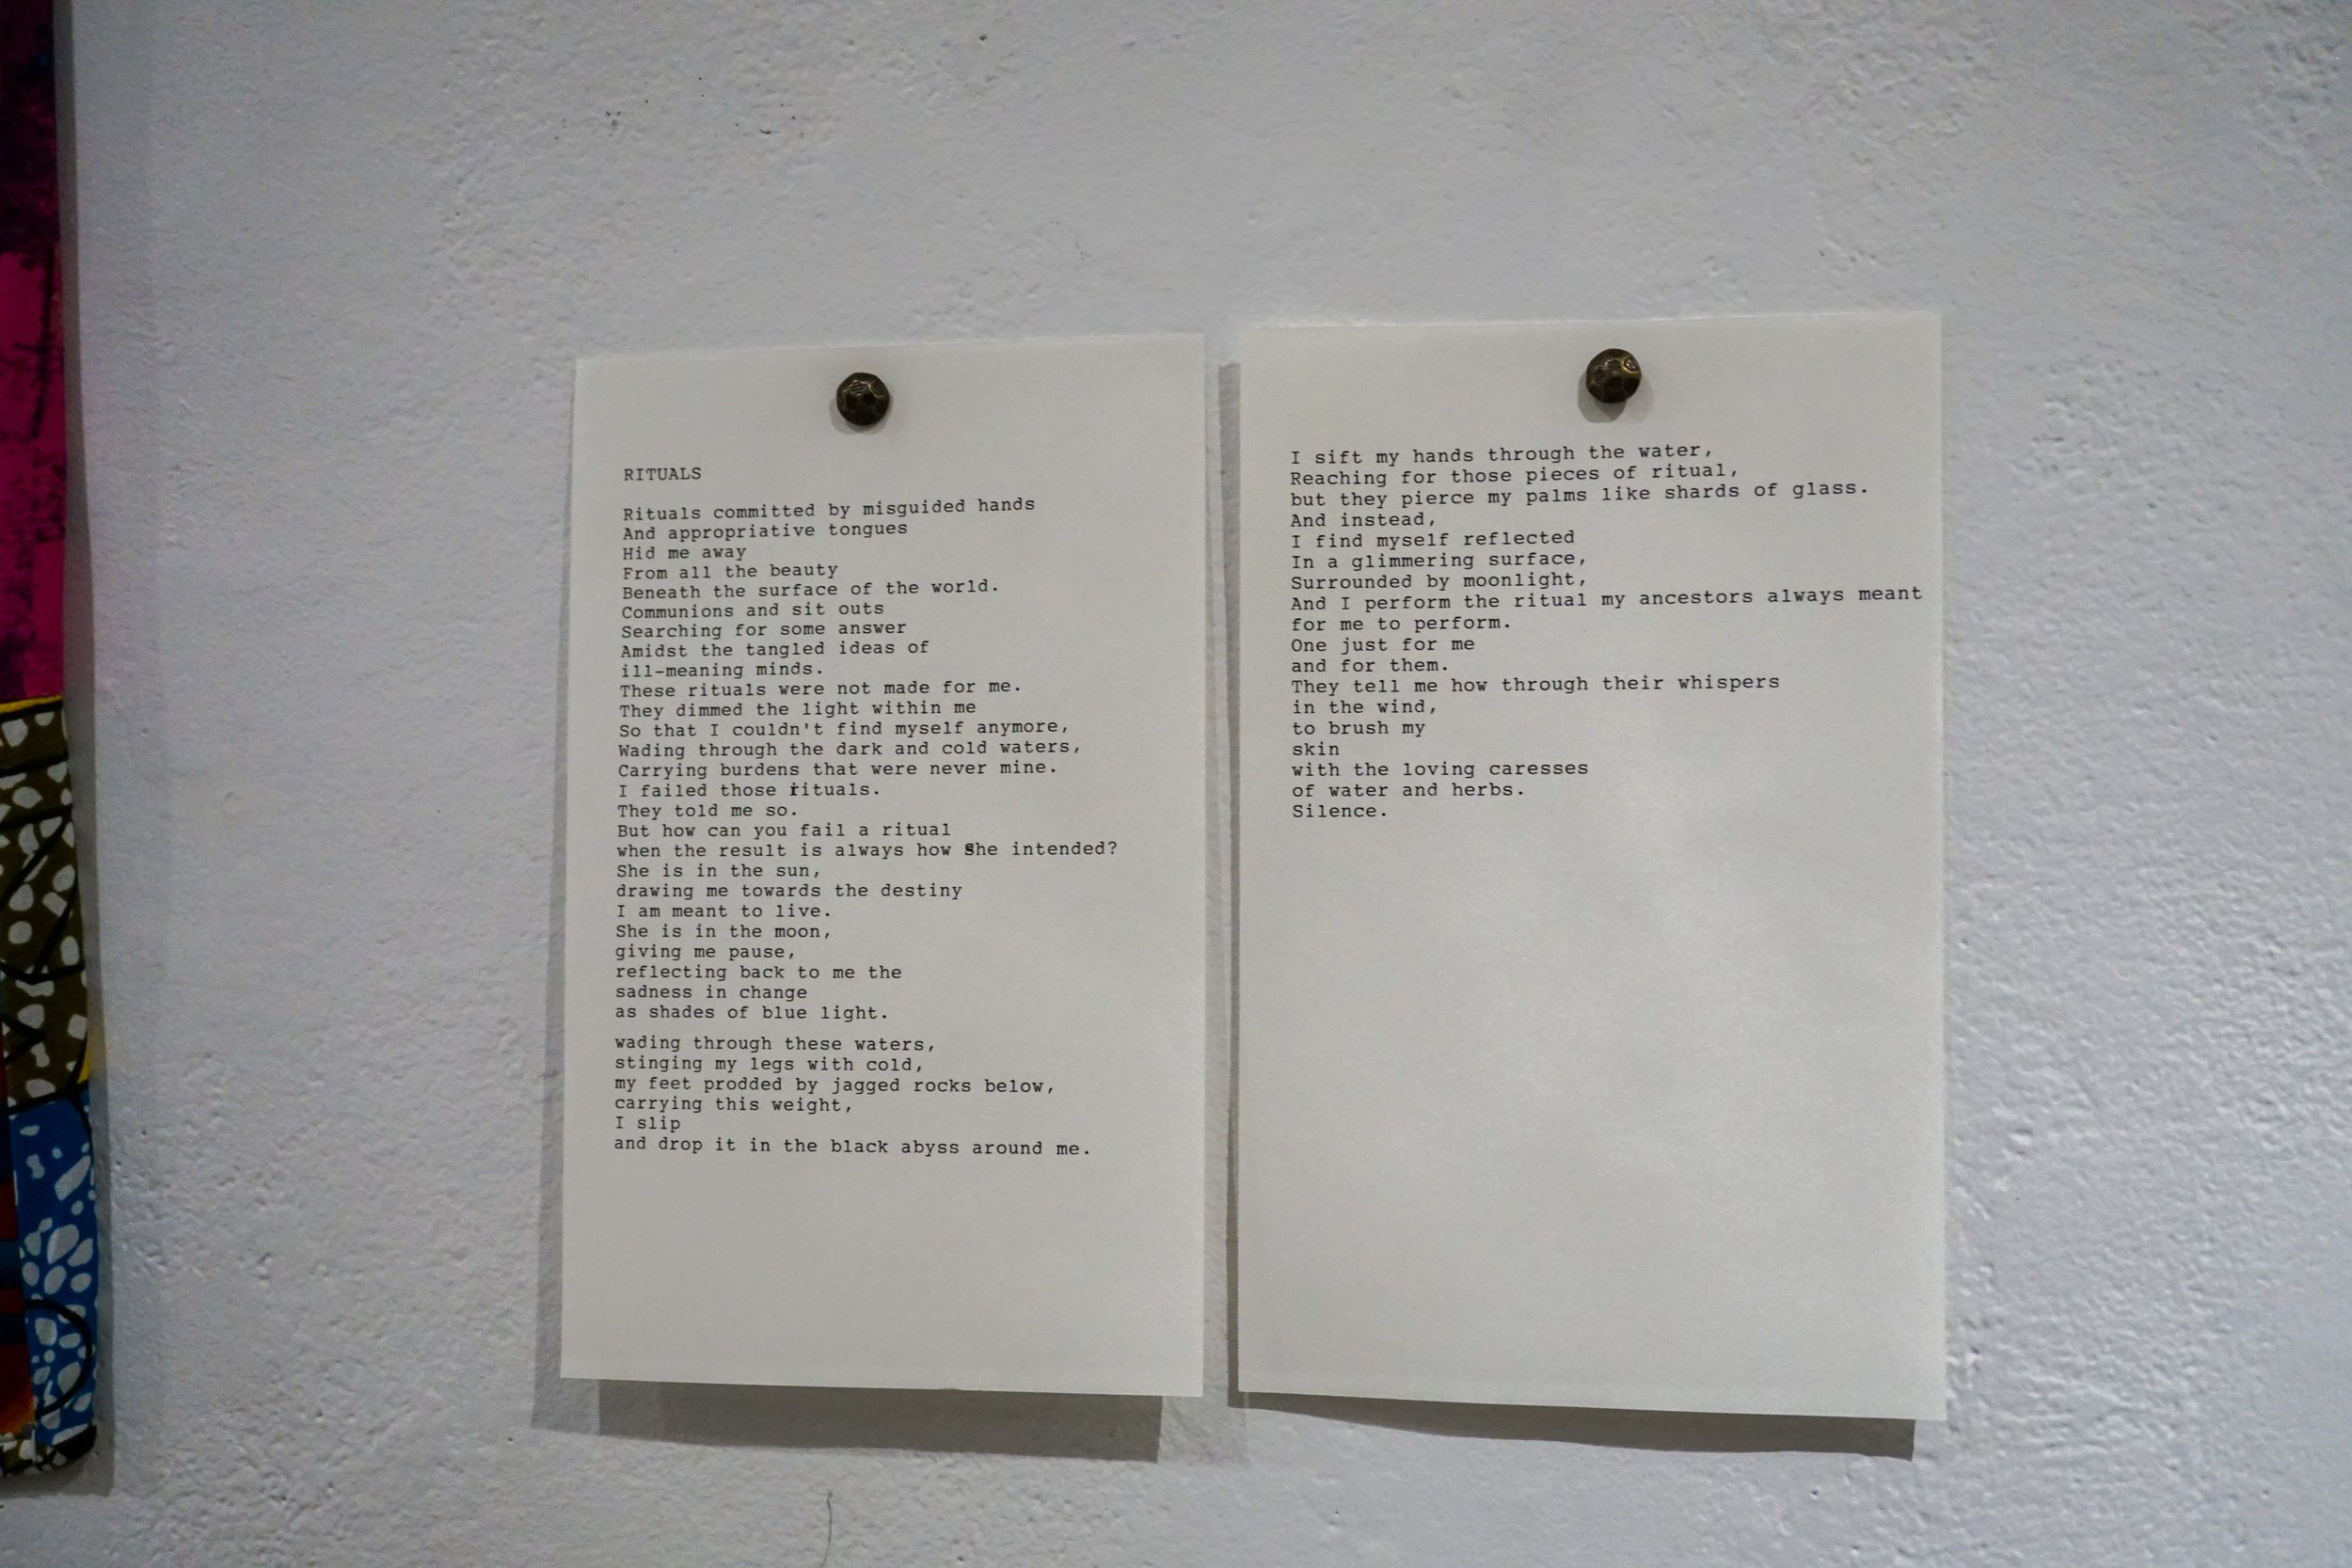 RITUALS
Rituals committed by misguided hands
And appropriative tongues
Hid me away
From all the beauty
Beneath the surface of the world.
Communions and sit outs
Searching for some answer
Amidst the tangled ideas of
ill-meaning minds.
These rituals were not made for me.
They dimmed the light within me
So that I couldn't find myself anymore,
Wading through the dark and cold waters,
Carrying burdens that were never mine.
I failed those rituals.
They told me so.
But how can you fail a ritual
when the result is always how She intended?
She is in the sun,
drawing me towards the destiny
I am meant to live.
She is in the moon,
giving me pause,
reflecting back to me the
sadness in change
as shades of blue light.
wading through these waters,
stinging my legs with cold,
my feet prodded by jagged rocks below,
carrying this weight,
I slip
and drop it in the black abyss around me.
I sift my hands through the water,
Reaching for those pieces of ritual,
but they pierce my palms like shards of glass.
And instead,
I find myself reflected
In a glimmering surface,
Surrounded by moonlight,
And I perform the ritual my ancestors always meant
for me to perform.
One just for me
and for them.
They tell me how through their whispers
in the wind,
to brush my
skin
with the loving caresses
of water and herbs.
Silence.